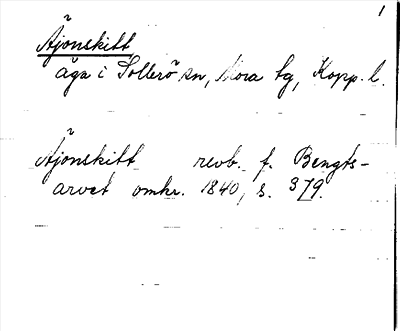 1
Äjonskitt
äga i Sollerö sn, Mora tg, Kopp. l.
Äjonskitt revb. f. Bengts-
arvet omkr. 1840, s. 379.